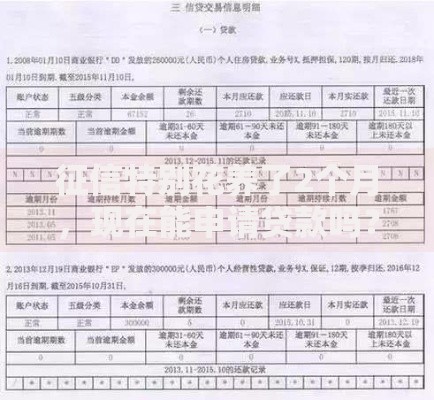 三 信贷交易信息明细
（一）贷款
1.2008年01月10日商业银行"DD"发放的260000元(人民币)个人住房贷款,业务号X,抵押担保,120期,按月归还,2018
年01月10日到期.截至2015年11月10日,
账户状态 五级分类 本金余额 剩余还款期数 本月应还款 应还款日 本月实还款 最近一次还款日期
正常 正常 67152 26 2710 2015.11.10 2710 2015.11.10
当前逾期期数 当前逾期金额 逾期31-60天未还本金 逾期61-90天未还本金 逾期91-180天未还本金 逾期180天以上未还本金
0 0 0 0 0 0
2013.12-2015.11的还款记录
征信特别花养了2个月
，现在能申请贷款吗？
逾期月份 逾期持续月数 逾期金额
2013.11 4767
2013.05 2708
2011.05 2708
2.2013年12月19日商业银行"EF"发放的300000元(人民币)个人经营性贷款,业务号X,保证,12期,按季归还,2016年12
月16日到期.截至2015年10月31日,
账户状态 五级分类 本金余额 剩余还款期数 本月应还款 应还款日 本月实还款 最近一次还款日期
正常 正常 300000 5 0 2015.10.31 0 2013.12.19
当前逾期期数 当前逾期金额 逾期31-60天未还本金 逾期61-90天未还本金 逾期91-180天未还本金 逾期180天以上未还本金
0 0 0 0 0 0
2013.11-2015.10的还款记录